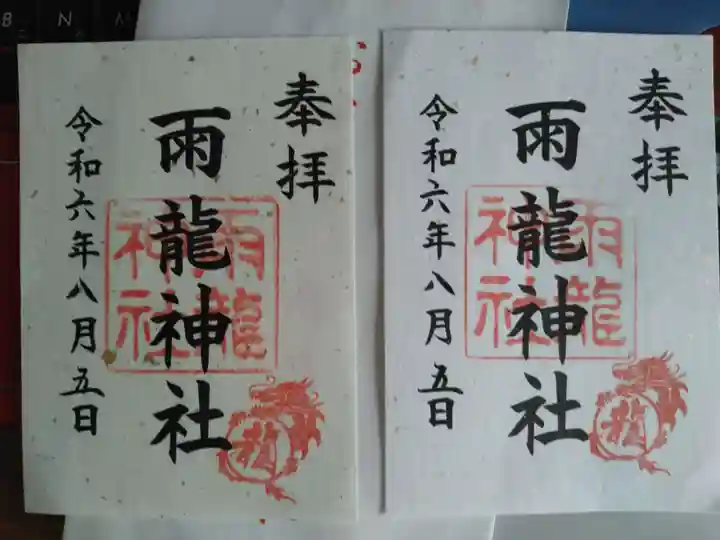 奉拝
雨龍神社
雨龍神社
龍
令和六年八月五日
奉拝
雨龍神社
雨龍神社
龍
令和六年八月五日
B N M